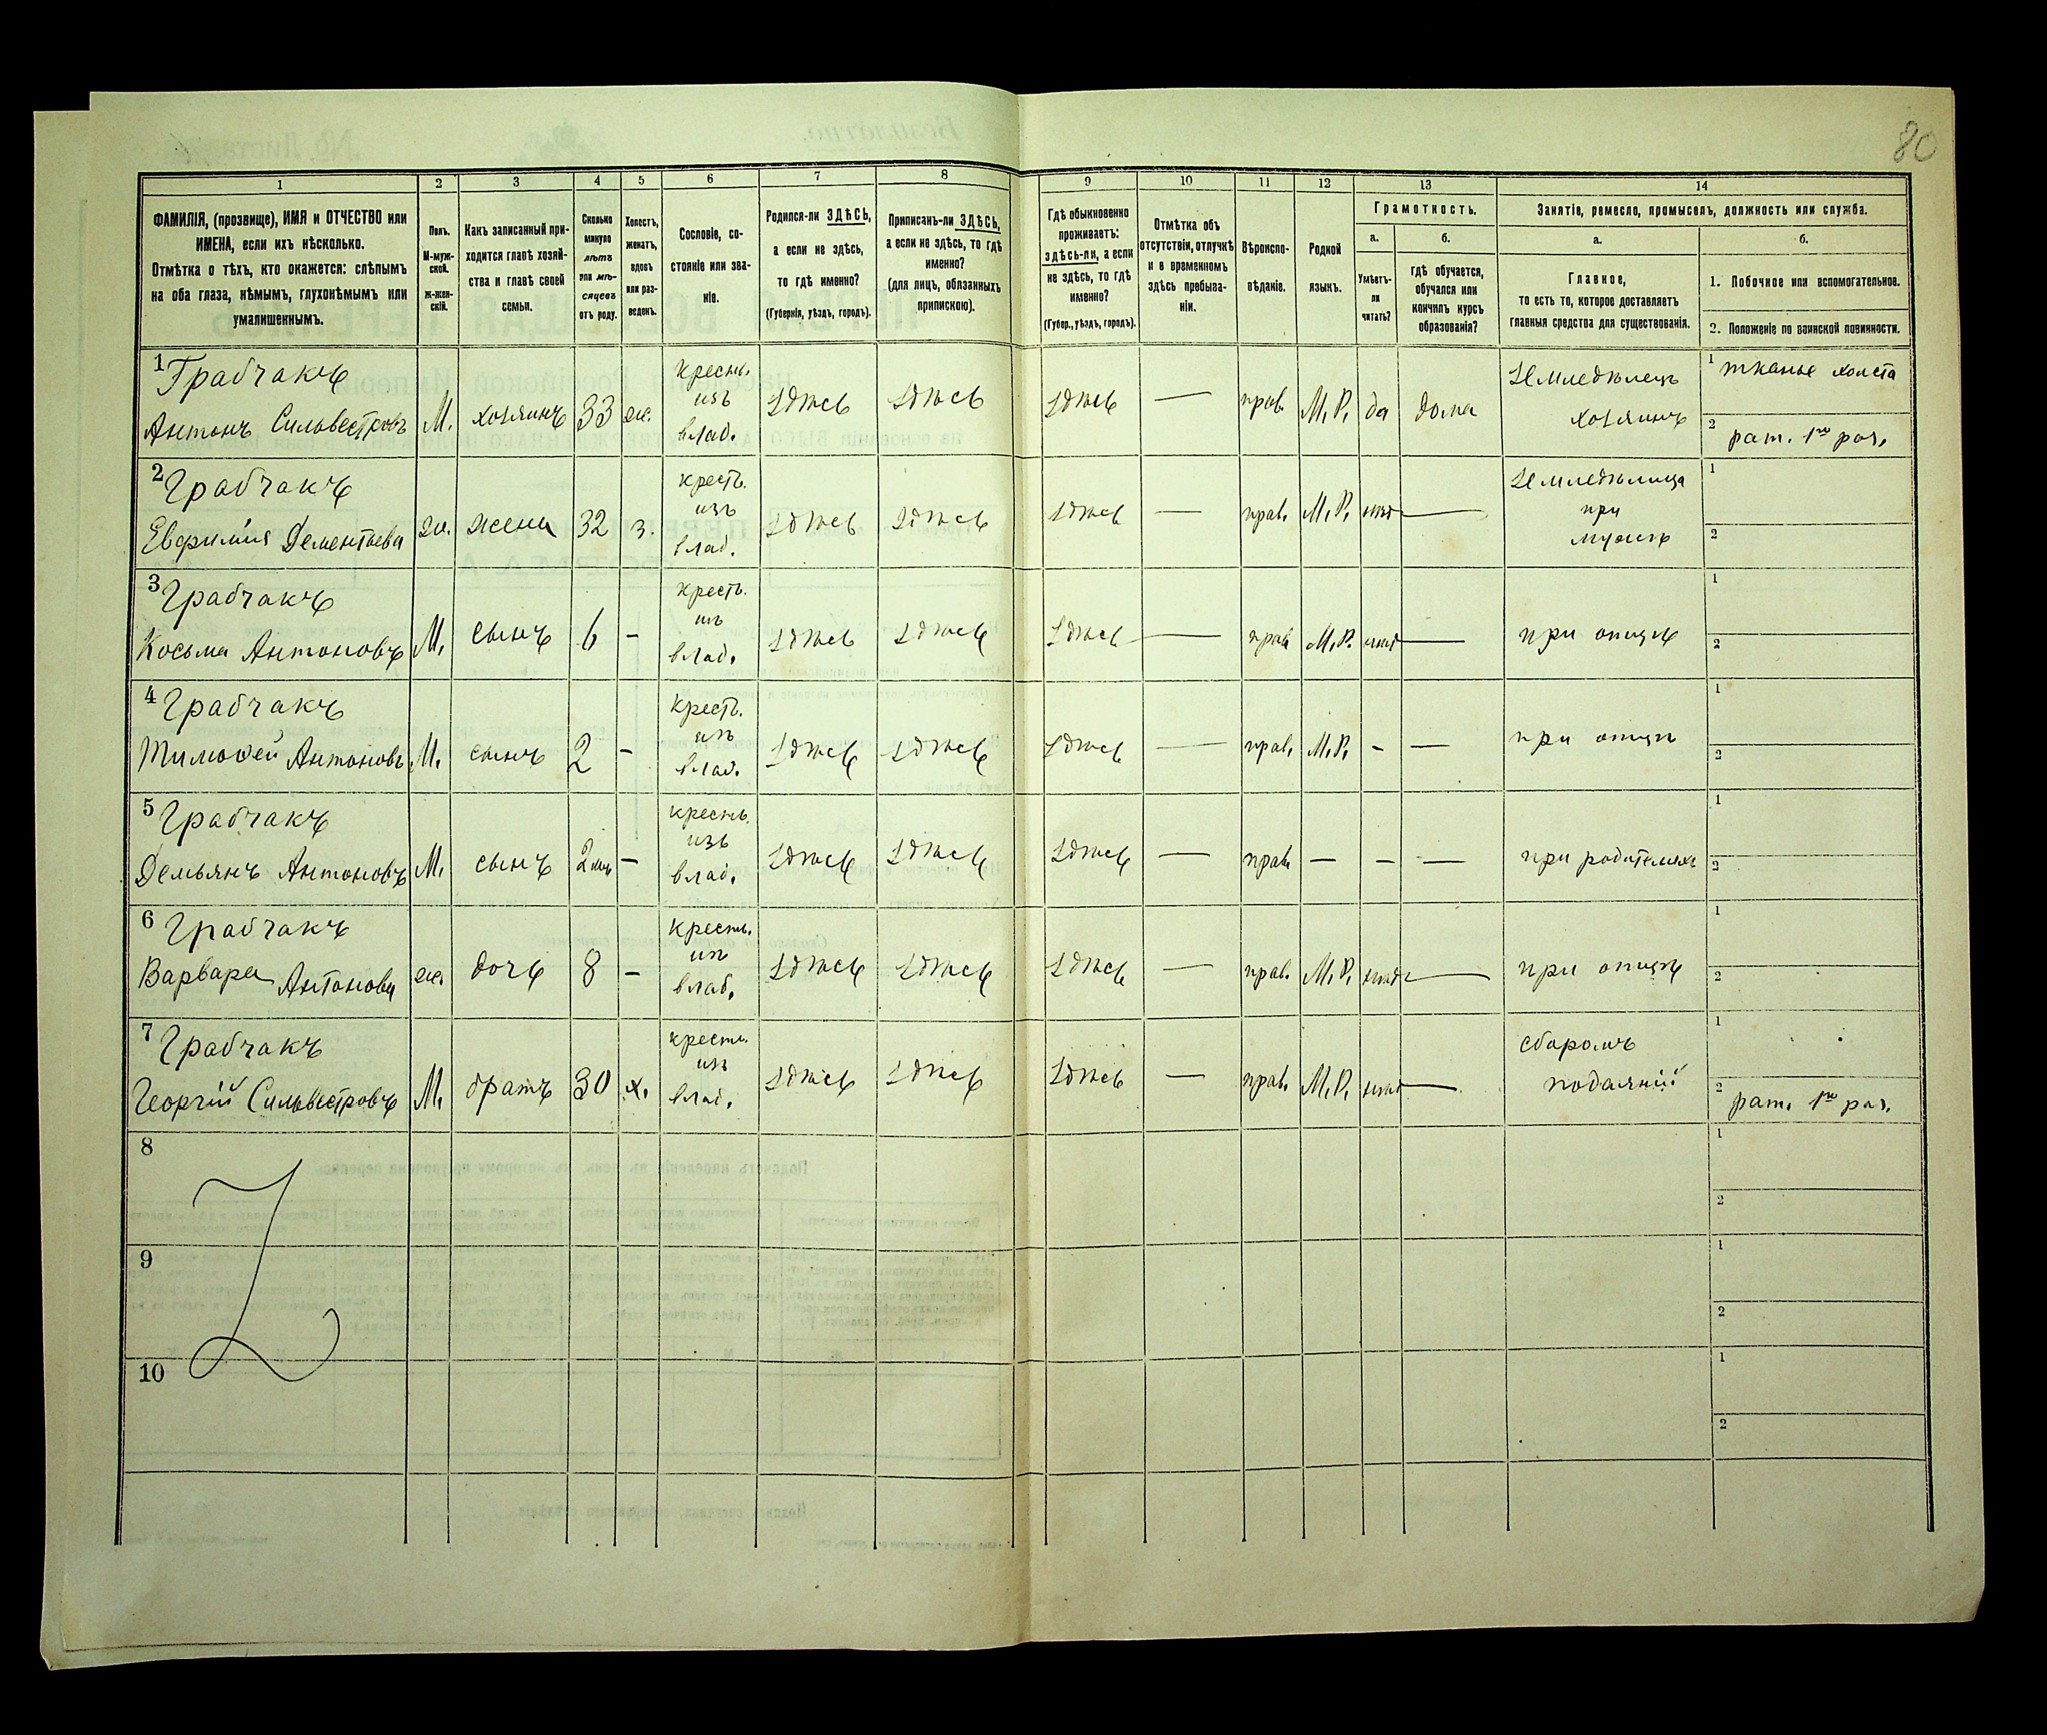 80
1 2 3 4 5 6 7 8 9 10 11 12 13 14
ФАМИЛІЯ, (прозвище), ИМЯ и ОТЧЕСТВО или
ИМЕНА, если ихъ нѣсколько.
Отмѣтка о тѣхъ, кто окажется: слѣпымъ
на оба глаза, нѣмымъ, глухонѣмымъ или
умалишеннымъ.
Полъ.
М-муж-
ской.
Ж-жен-
скій.
Какъ записанный при-
ходится главѣ хозяй-
ства и главѣ своей
семьи.
Сколько
минуло
лѣтъ
или мѣ-
сяцевъ
отъ роду.
Холостъ,
женатъ,
вдовъ
или раз-
веденъ.
Сословіе, со-
стояніе или зва-
ніе.
Родился-ли ЗДѢСЬ,
а если не здѣсь,
то гдѣ именно?
(Губернія, уѣздъ, городъ).
Приписанъ-ли ЗДѢСЬ,
а если не здѣсь, то гдѣ
именно?
(для лицъ, обязанныхъ
припискою).
Гдѣ обыкновенно
проживаетъ:
здѣсь-ли, а если
не здѣсь, то гдѣ
именно?
(Губер., уѣздъ, городъ).
Отмѣтка объ
отсутствіи, отлучкѣ
и о временномъ
здѣсь пребыва-
ніи.
Вѣроиспо-
вѣданіе.
Родной
языкъ.
Грамотность.
а.
Умѣетъ-
ли
читать?
б.
гдѣ обучается,
обучался или
кончилъ курсъ
образованія?
Занятіе, ремесло, промыселъ, должность или служба.
а.
Главное,
то есть то, которое доставляетъ
главныя средства для существованія.
б.
1. Побочное или вспомогательное.
2. Положеніе по воинской повинности.
1 Грабчакъ
Антонъ Сильвестровъ М. хозяинъ 33 ж. крестъ. изъ влад. здѣсь здѣсь здѣсь — прав. М. Р. да дома Земледѣлецъ хозяинъ 1 тканье холста
2 рат. 1го раз.
2 Грабчакъ
Евфимія Дементьева ж. жена 32 з. крестъ. изъ влад. здѣсь здѣсь здѣсь — прав. М. Р. нѣтъ — Земледѣлица при мужѣ 1
2
3 Грабчакъ
Косьма Антоновъ М. сынъ 6 — крестъ. изъ влад. здѣсь здѣсь здѣсь — прав. М. Р. нѣтъ — при отцѣ 1
2
4 Грабчакъ
Тимоѳей Антоновъ М. сынъ 2 — крестъ. изъ влад. здѣсь здѣсь здѣсь — прав. М. Р. — — при отцѣ 1
2
5 Грабчакъ
Демьянъ Антоновъ М. сынъ 2 мѣ — крестъ. изъ влад. здѣсь здѣсь здѣсь — прав. — — — при родителяхъ 1
2
6 Грабчакъ
Варвара Антонова ж. дочь 8 — крестъ. изъ влад. здѣсь здѣсь здѣсь — прав. М. Р. нѣтъ — при отцѣ 1
2
7 Грабчакъ
Георгій Сильвестровъ М. братъ 30 х. крестъ. изъ влад. здѣсь здѣсь здѣсь — прав. М. Р. нѣтъ — сборомъ подаяній 1
2 рат. 1го раз.
8 1
2
9 1
2
10 1
2